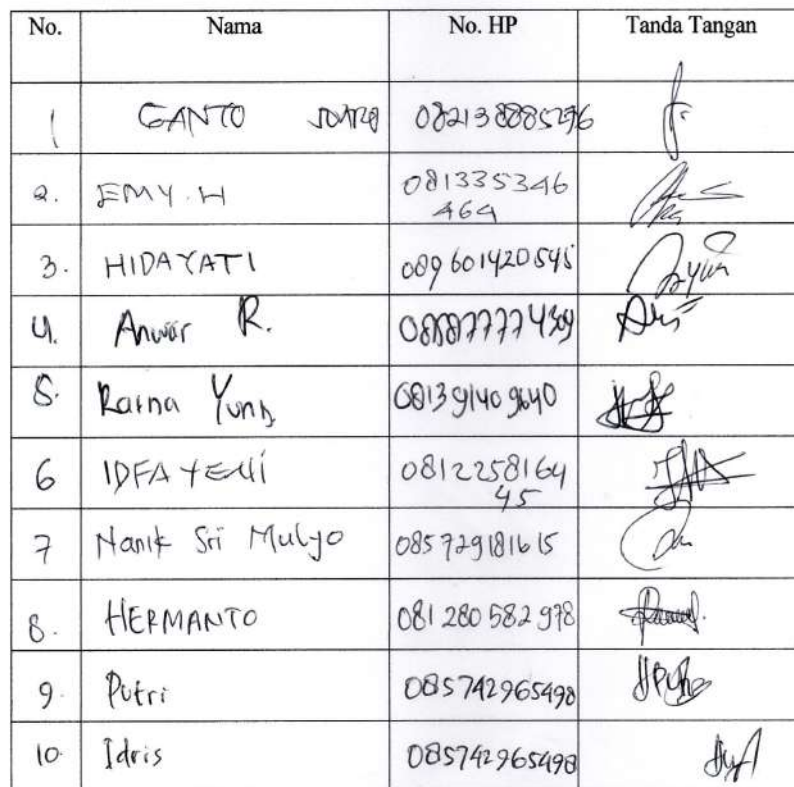 No. Nama No. HP Tanda Tangan
1 GANTO 082138885276
2. EMY. H 081335346
464
3. HIDAYATI 089601420545
4. Anwar R. 088877774309
5. Ratna Yuni 081391409640
6 IDFA YENI 0812258164
45
7 Nanik Sri Mulyo 085729181615
8. HERMANTO 081 280 582 978
9. Putri 085742965498
10. Idris 085742965498